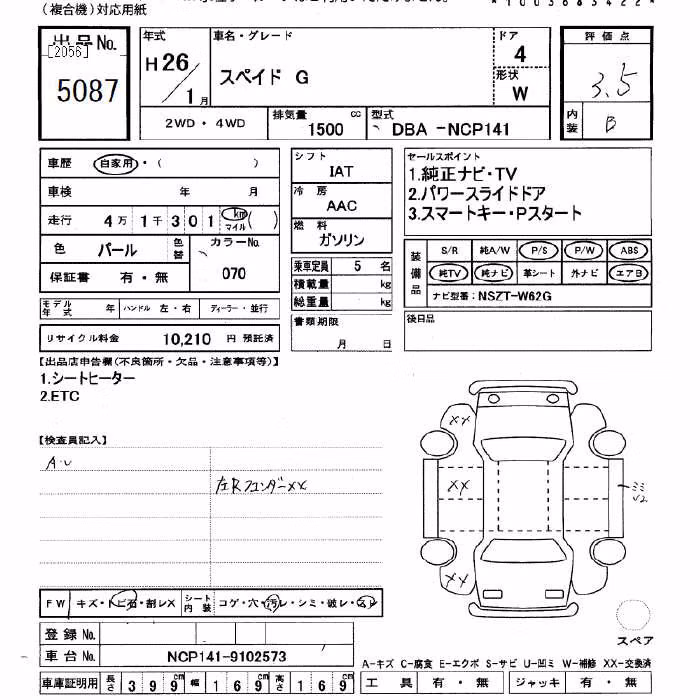 (複合機)対応用紙
*1003683422*
出品No.
[2056]
5087
年式
H26/1月
車名・グレード
スペイド G
ドア
4
形状
W
評価点
3.5
内装
B
2WD・4WD
排気量
1500 cc
型式
DBA -NCP141
車歴 自家用・( )
車検 年 月
走行 4万1千301 km マイル ( )
色 パール 色替 カラーNo.
070
保証書 有・無
モデル年式 年 ハンドル 左・右 ディーラー・並行
リサイクル料金 10,210 円 預託済
シフト
IAT
冷房
AAC
燃料
ガソリン
乗車定員 5 名
積載量 kg
総重量 kg
書類期限
月 日
セールスポイント
1.純正ナビ・TV
2.パワースライドドア
3.スマートキー・Pスタート
装備品
S/R 純A/W P/S P/W ABS
純TV 純ナビ 革シート 外ナビ エアB
ナビ型番:NSZT-W62G
後日品
【出品店申告欄(不良箇所・欠品・注意事項等)】
1.シートヒーター
2.ETC
【検査員記入】
A・U
左Rフェンダーxx
FW キズ・トビ石・割レX
シート内装 コゲ・穴・汚レ・シミ・破レ・スレ
登録No.
車台No. NCP141-9102573
車庫証明用 長さ 399cm 幅 169cm 高さ 169cm
xx
xx
xx
ミミ
U2
スペア
A-キズ C-腐食 E-エクボ S-サビ U-凹ミ W-補修 XX-交換済
工具 有・無 ジャッキ 有・無